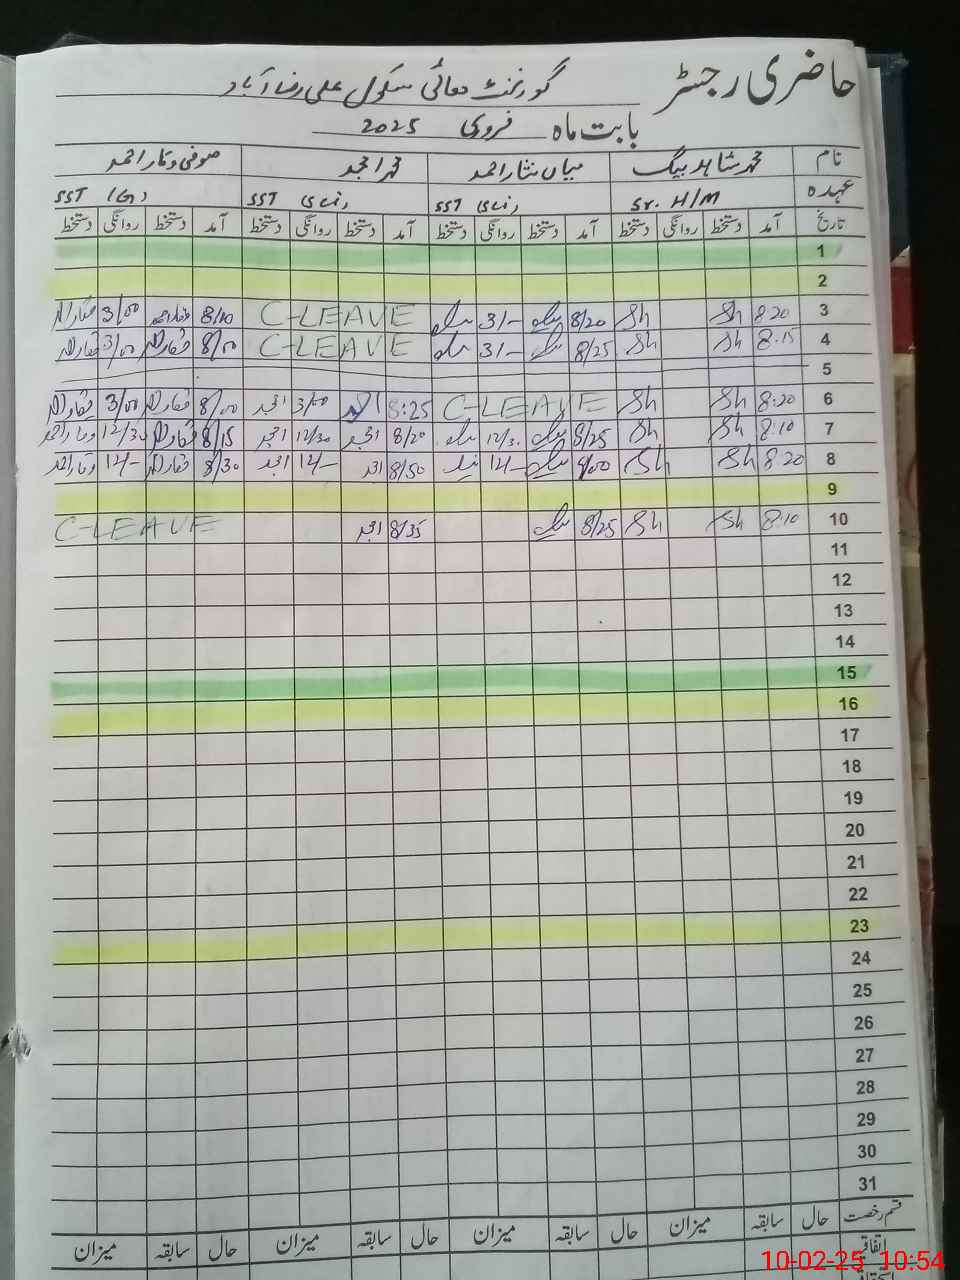 حاضری رجسٹر گورنمنٹ ہائی سکول علی رضا آباد
بابت ماہ فروری 2025
نام محمد شاہد بیگ میاں نثار احمد محمد امجد صوفی وقار احمد
عہدہ Sr. H/M SST SST SST (G)
تاریخ آمد دستخط روانگی دستخط آمد دستخط روانگی دستخط آمد دستخط روانگی دستخط آمد دستخط روانگی دستخط
1
2
3 8:20 Sh Sh 8/20 3/- C-LEAVE 8/10 3/00
4 8:15 Sh Sh 8/25 3/- C-LEAVE 8/00 3/00
5
6 8:20 Sh Sh C-LEAVE 8:25 3/00 امجد 8/00 3/00
7 8:10 Sh Sh 8/25 12/30 8/20 امجد 12/30 امجد 8/15 12/30
8 8:20 Sh Sh 12/- 8/50 امجد 12/- امجد 8/30 12/-
9
10 8:10 Sh Sh 8/25 8/35 امجد C-LEAVE
11
12
13
14
15
16
17
18
19
20
21
22
23
24
25
26
27
28
29
30
31
قسم رخصت حال سابقہ میزان حال سابقہ میزان حال سابقہ میزان حال سابقہ میزان
اتفاقیہ
10-02-25 10:54